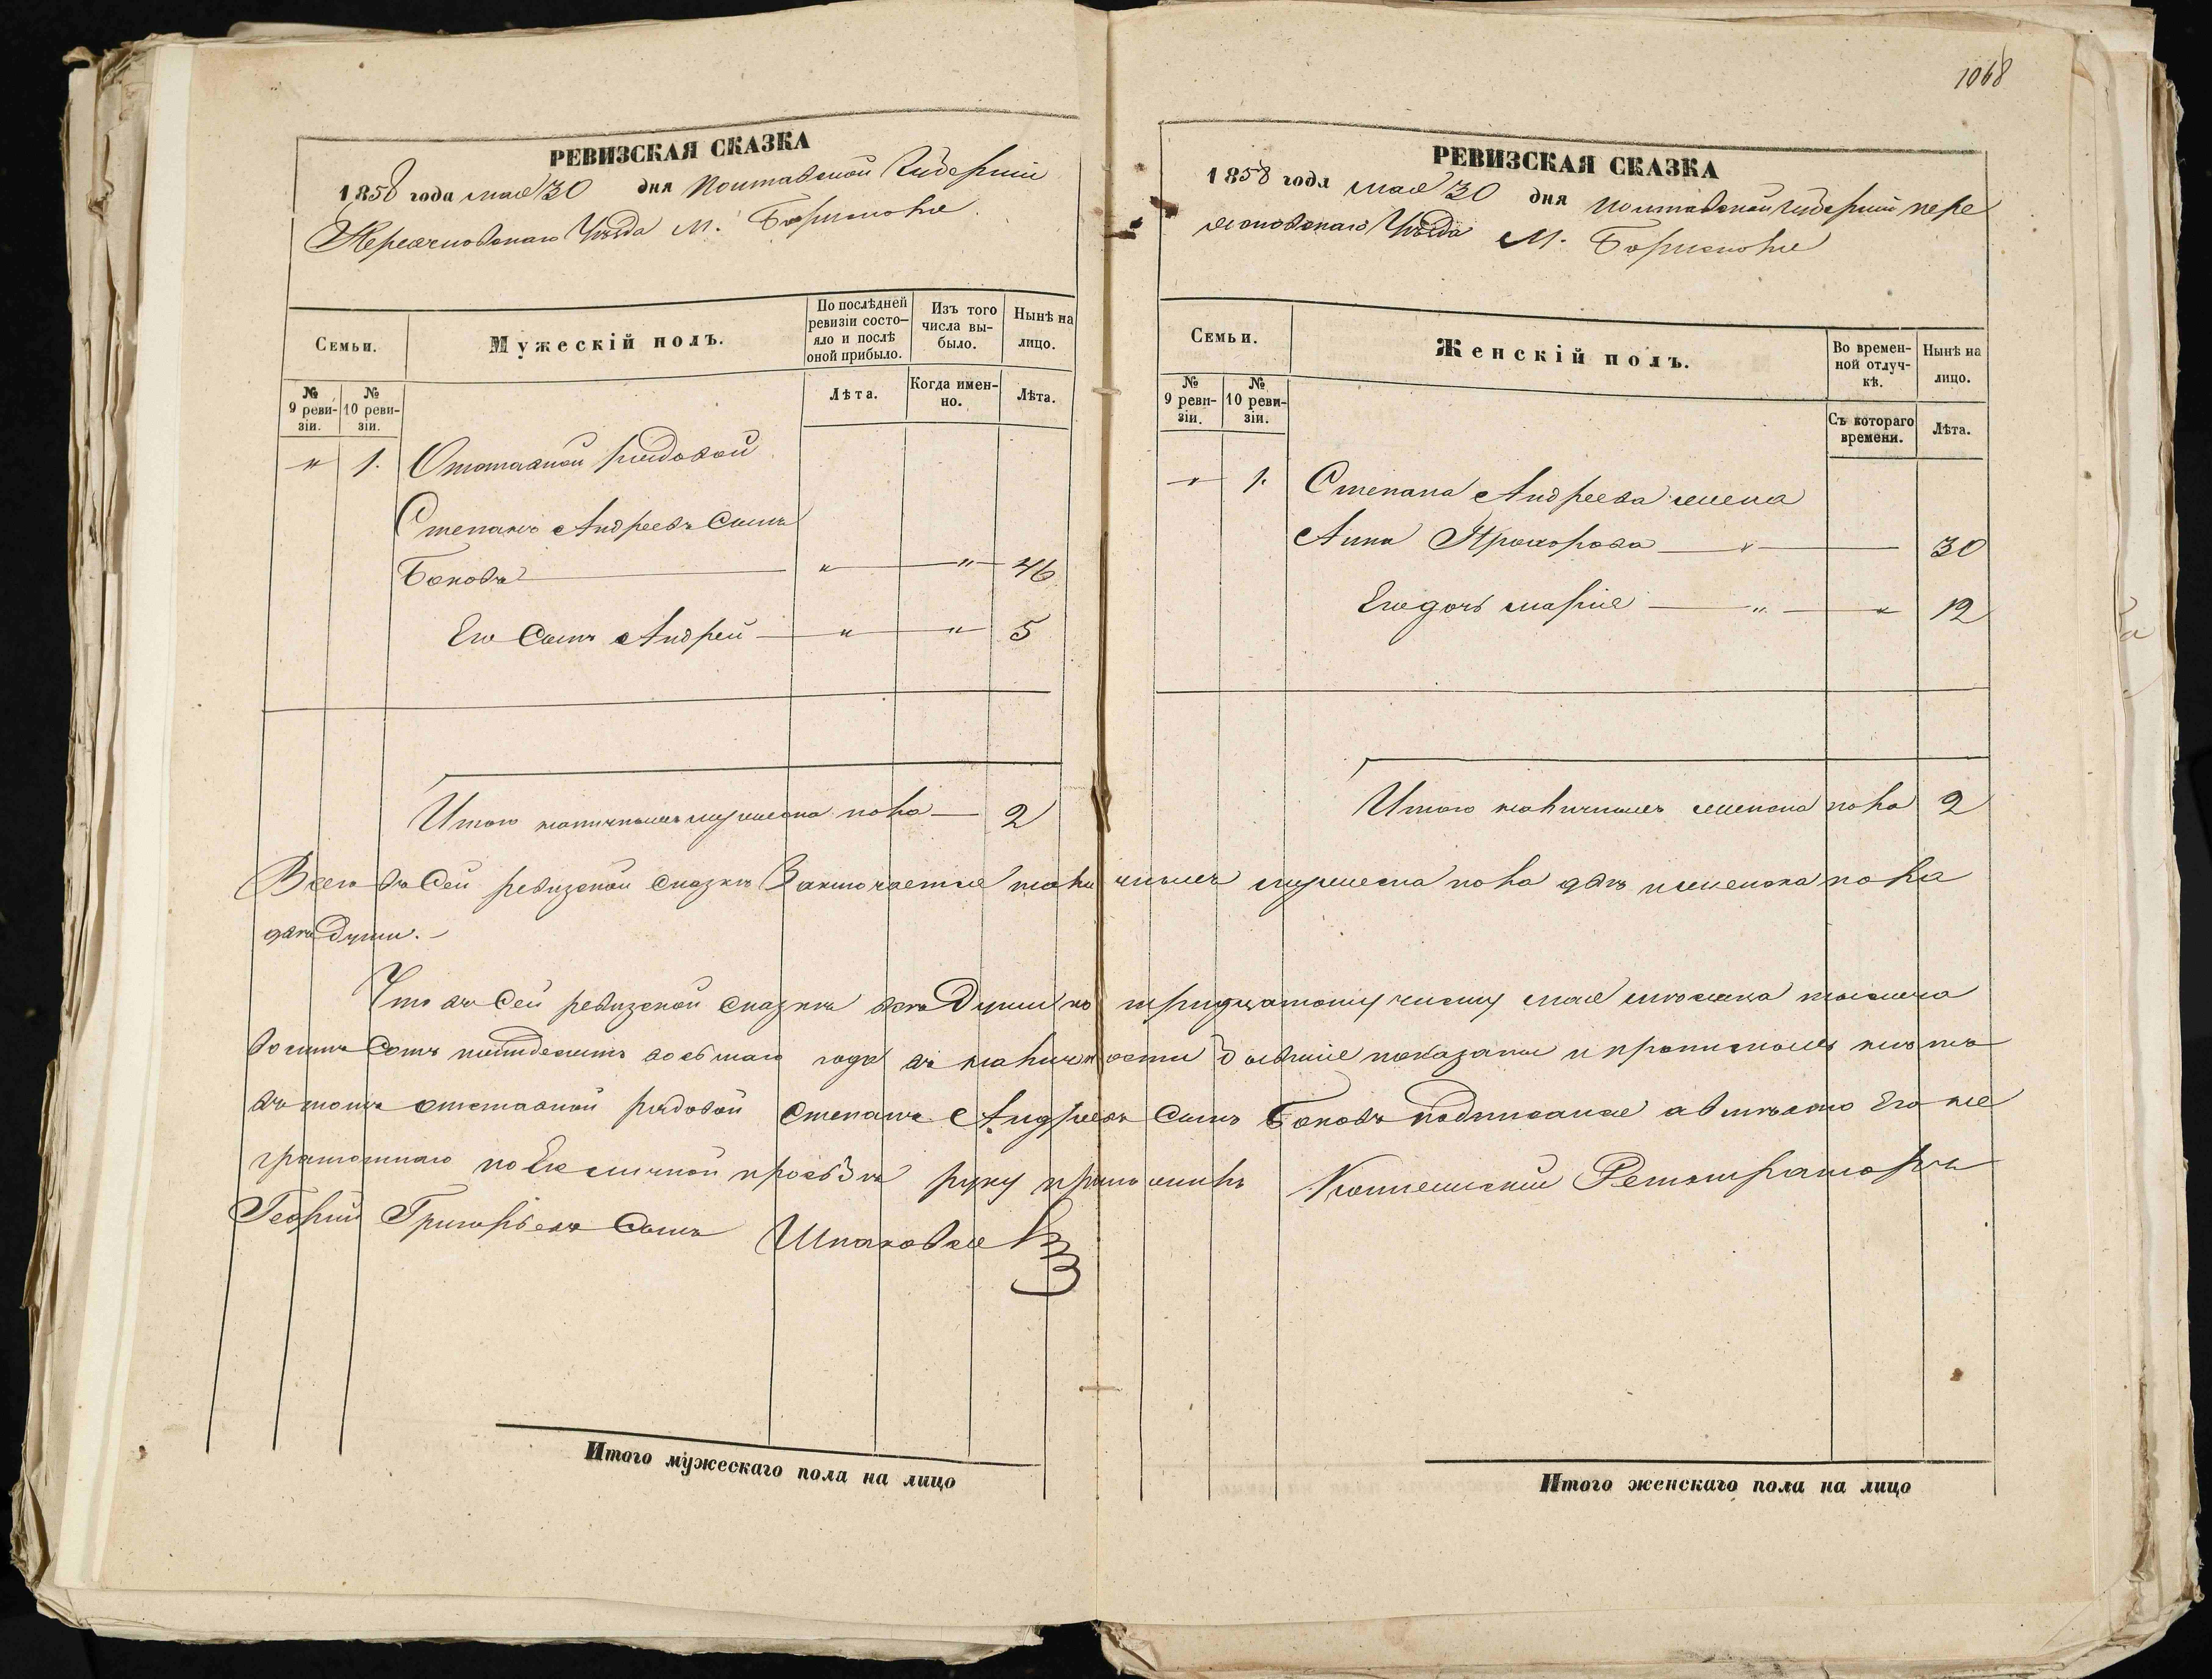 1068
РЕВИЗСКАЯ СКАЗКА
1858 года мая 30 дня Полтавской Губерніи
Переяславскаго Уѣзда М. Борисполя
Семьи.
Мужескій полъ.
По послѣдней ревизіи состояло и послѣ оной прибыло.
Изъ того числа выбыло.
Нынѣ на лицо.
№ 9 ревизіи.
№ 10 ревизіи.
Лѣта.
Когда именно.
Лѣта.
" 1. Отставной рядовой
Степанъ Андреевъ Сынъ
Боковъ " " 46
Его Сынъ Андрей " " 5
Итого наличныхъ мужеска пола 2
РЕВИЗСКАЯ СКАЗКА
1858 года мая 30 дня Полтавской Губерніи пере
яславскаго Уѣзда М. Борисполя
Семьи.
Женскій полъ.
Во временной отлучкѣ.
Нынѣ на лицо.
№ 9 ревизіи.
№ 10 ревизіи.
Съ котораго времени.
Лѣта.
" 1. Степана Андреева жена
Анна Прохорова " 30
Его дочь марія " " 12
Итого наличныхъ женска пола 2
Всего въ Сей ревизской сказкѣ Заключается наличныхъ мужеска пола двѣ и женска пола
двѣ Души.
Что въ Сей ревизской сказкѣ всѣ Души по тридцатому числу мая мѣсяца тысяча
восимъ Сотъ пятдесятъ восьмаго года въ наличности бывшіе показаны и прописныхъ нѣтъ
въ томъ отставной рядовой Степанъ Андреевъ Сынъ Боковъ подписался а вмѣсто Его не
грамотнаго по Его личной прозьбѣ руку приложилъ Коллежскій Регистраторъ
Георгий Григорьевъ Сынъ
Итого мужескаго пола на лицо
Итого женскаго пола на лицо